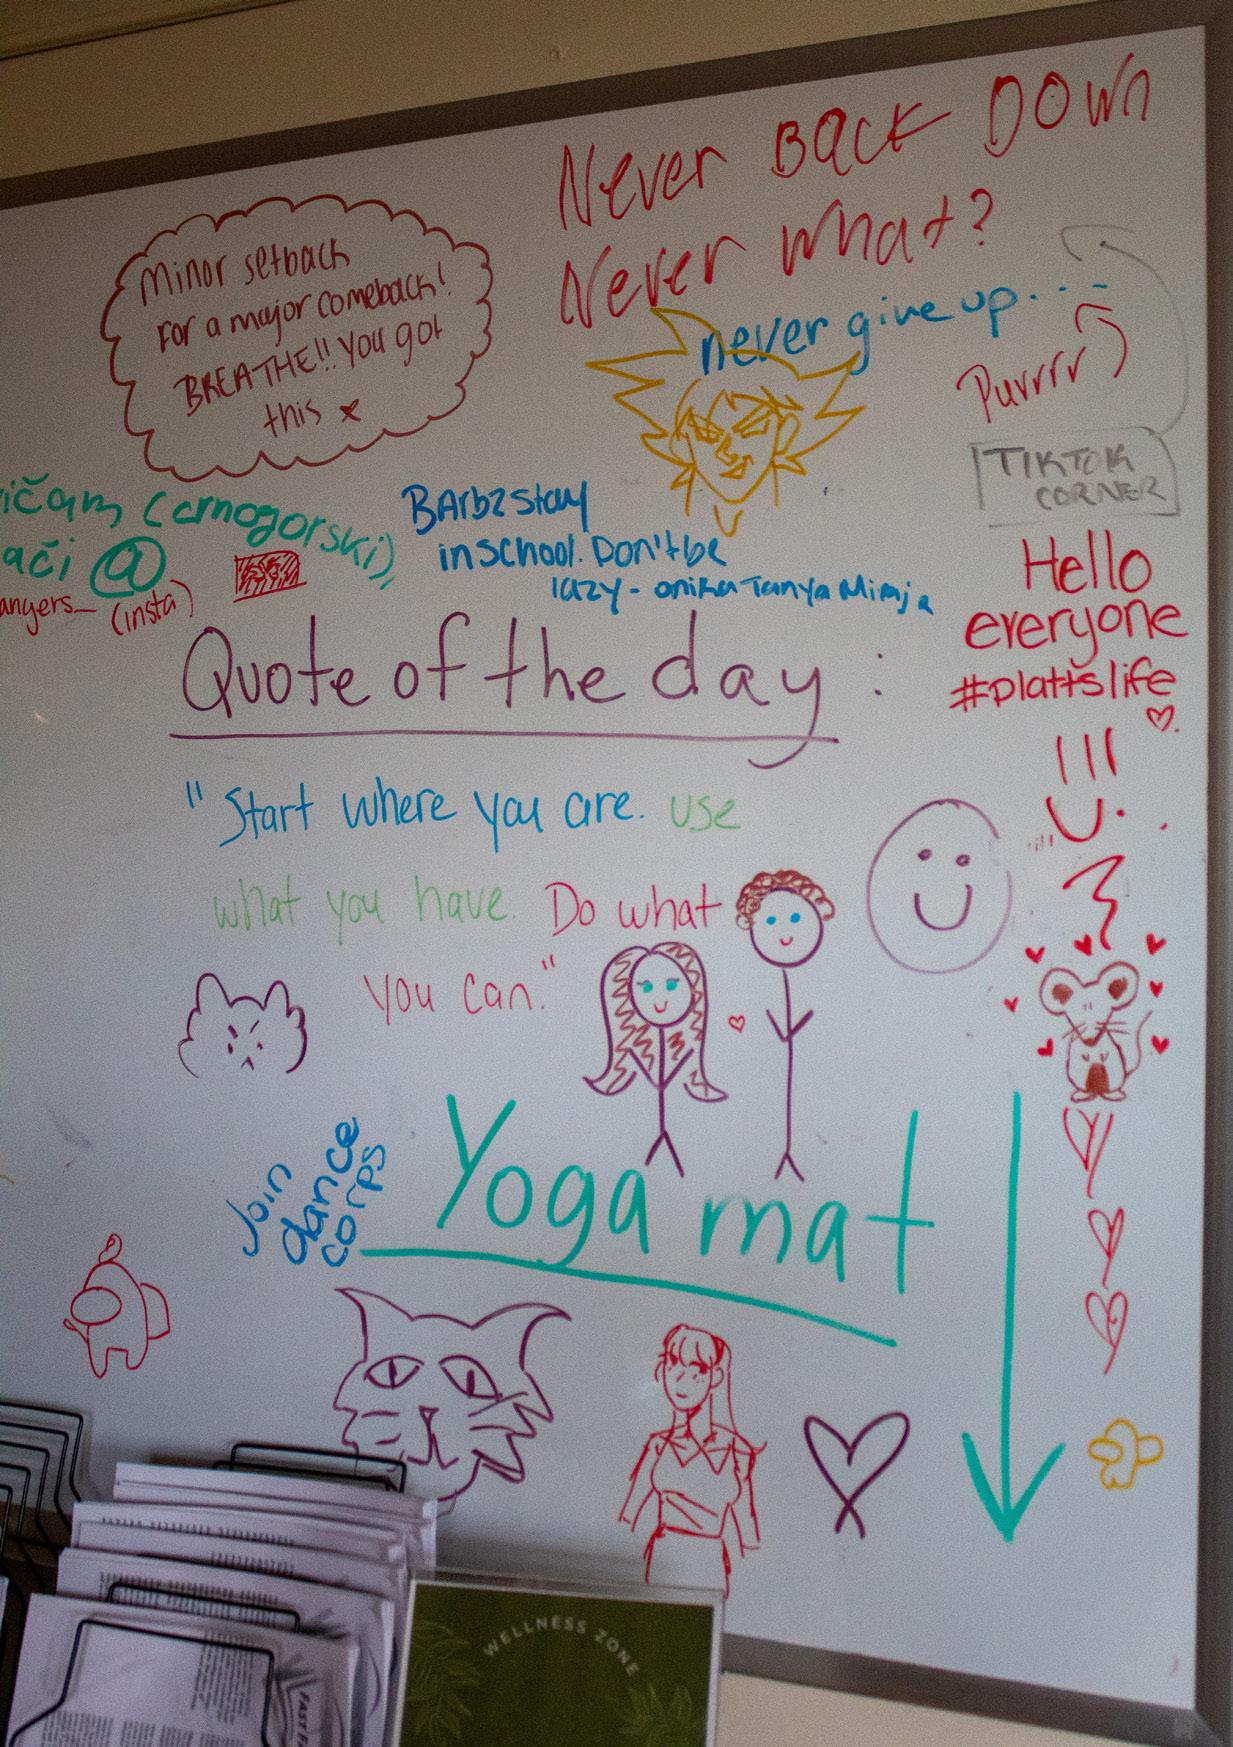 Never Back Down
Never what?
never give up....
Purrrr
TIKTOK
CORNER
Minor setback
for a major comeback!
BREATHE!! You got
this x
ičam (crnogorski)
ači @
angers_ (insta)
Barbz stay
in school. Don't be
lazy - onika Tanya Miraj
Hello
everyone
#plattslife
Quote of the day:
"Start where you are. use
what you have. Do what
you can."
Join
dance
corps
Yoga mat
WELLNESS ZONE